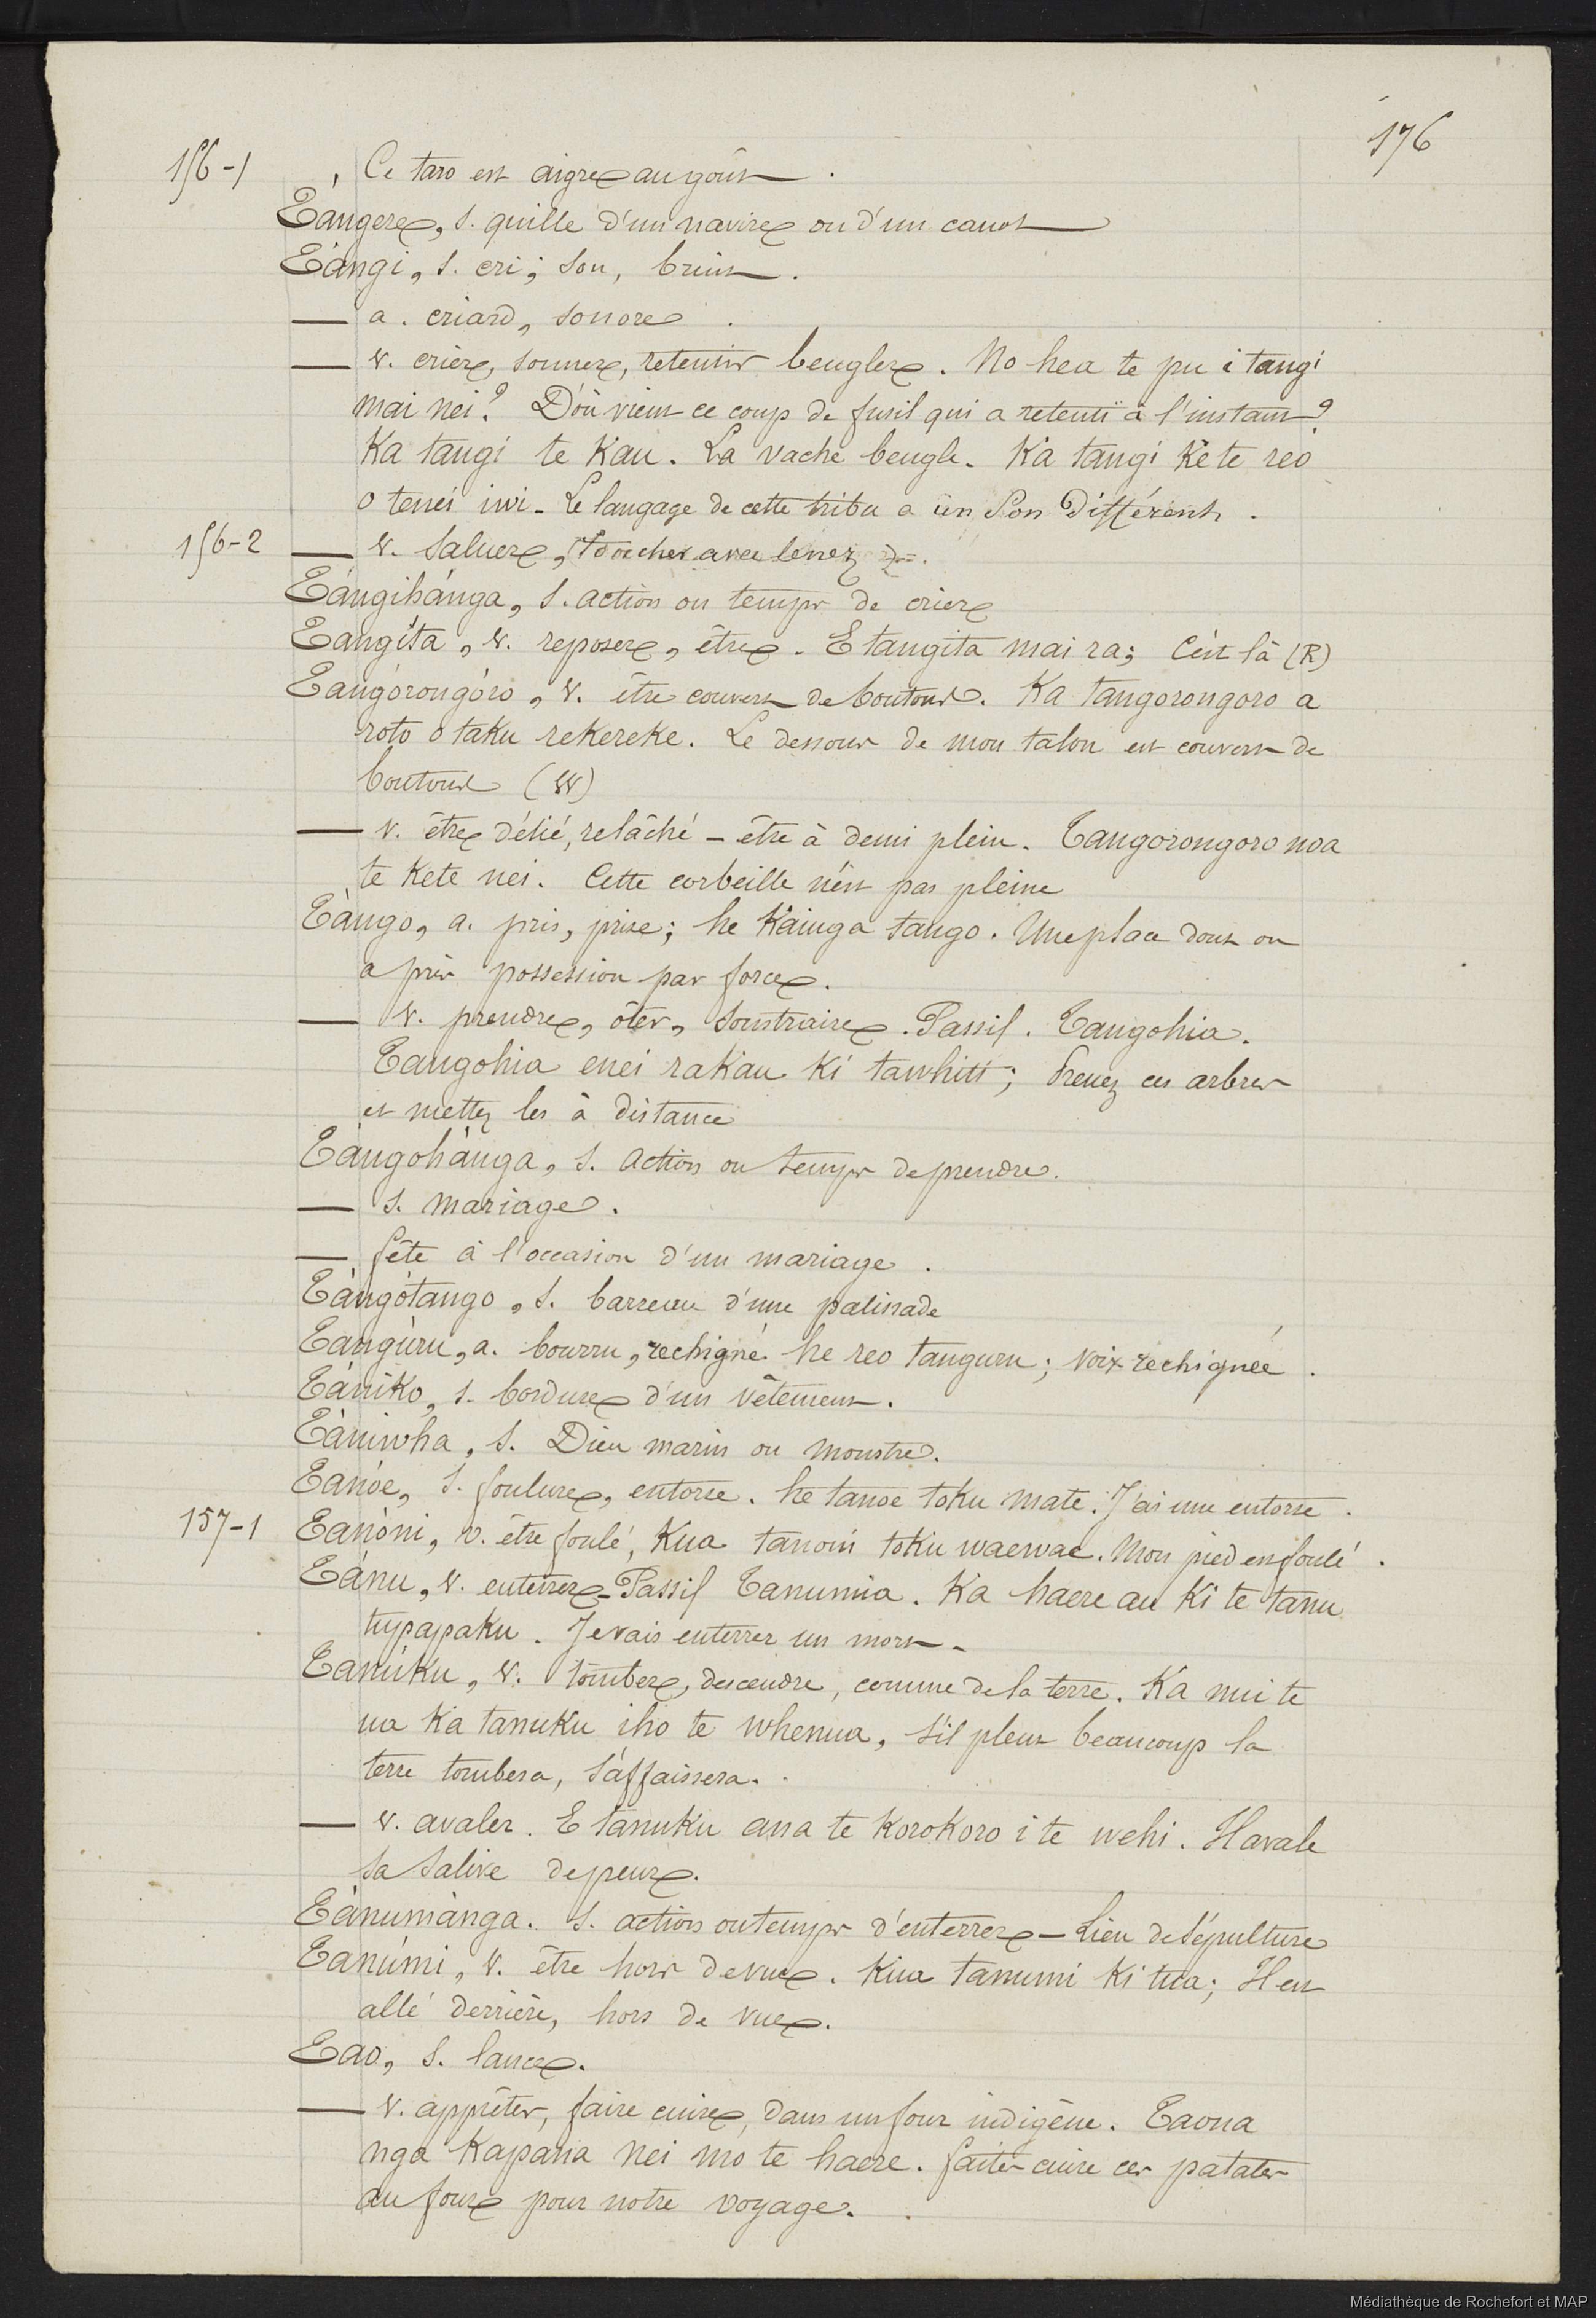 176
156-1 Ce taro est aigre au goût.
Tángere, s. quille d'un navire ou d'un canot
Tángi, s. cri; son, bruit.
— a. criard, sonore.
— v. crier, sonner, retentir beugler. No hea te pu i tangi
mai nei? D'où vient ce coup de fusil qui a retenti à l'instant?
Ka tangi te Kau. La vache beugle. Ka tangi Kē te reo
o tenei iwi. Le langage de cette tribu a un son Différent.
156-2 — v. saluer, toucher avec le nez
Tángihánga, s. action ou temps de crier
Tangíta, v. reposer, être. E tangita mai ra; C'est là (R)
Tangórongóro, v. être couvert de boutons. Ka tangorongoro a
roto o taku rekereke. Le dessous de mon talon est couvert de
boutons (W)
— v. être délié, relâché - être à demi plein. Tangorongoro noa
te Kete nei. Cette corbeille n'est pas pleine
Tàngo, a. pris, prise; he Kainga tango. Une place dont on
a pris possession par force.
— v. prendre, ôter, soustraire. Passif. Tangohia.
Tangohia enei rakau Ki tawhiti; Prenez ces arbres
et mettez les à distance
Tángohánga, s. action ou temps de prendre.
— s. mariage.
— fête à l'occasion d'un mariage.
Tàngòtango, s. barreau d'une palissade
Tangùru, a. bourru, rechigné. he reo tanguru; voix rechignée.
Tàniko, s. bordure d'un vêtement.
Tàniwha, s. Dieu marin ou monstre.
Tanòe, s. foulure, entorse. he tanoe toku mate. J'ai une entorse.
157-1 Tanòni, v. être foulé, Kua tanoni toku waewae. Mon pied est foulé.
Tánu, v. enterrer. Passif Tanumia. Ka haere au Ki te tanu
tupapaku. Je vais enterrer un mort.
Tanúku, v. tomber, descendre, comme de la terre. Ka nui te
ua Ka tanuku iho te whenua, s'il pleut beaucoup la
terre tombera, s'affaissera.
— v. avaler. E tanuku ana te Korokoro i te wehi. Il avale
sa salive de peur.
Tànumànga. s. action ou temps d'enterrer - Lieu de sépulture
Tanúmi, v. être hors de vue. Kua tanumi Ki tua; Il est
allé derrière, hors de vue.
Tao, s. lance.
— v. apprêter, faire cuire, dans un four indigène. Taona
nga Kapana nei mo te haere. faites cuire ces patates
au four pour notre voyage.
Médiathèque de Rochefort et MAP